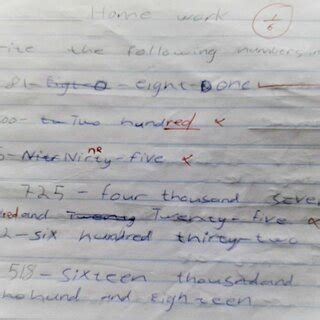 Home work
1/6
the following numbers in
81 - eight one
00 - Two hundred
5 - Ninety-five
725 - four thousand seve
red and Twenty Twenty-five
2 - six hundred thirty-two
518 - sixteen thousand and
hund and Eighteen